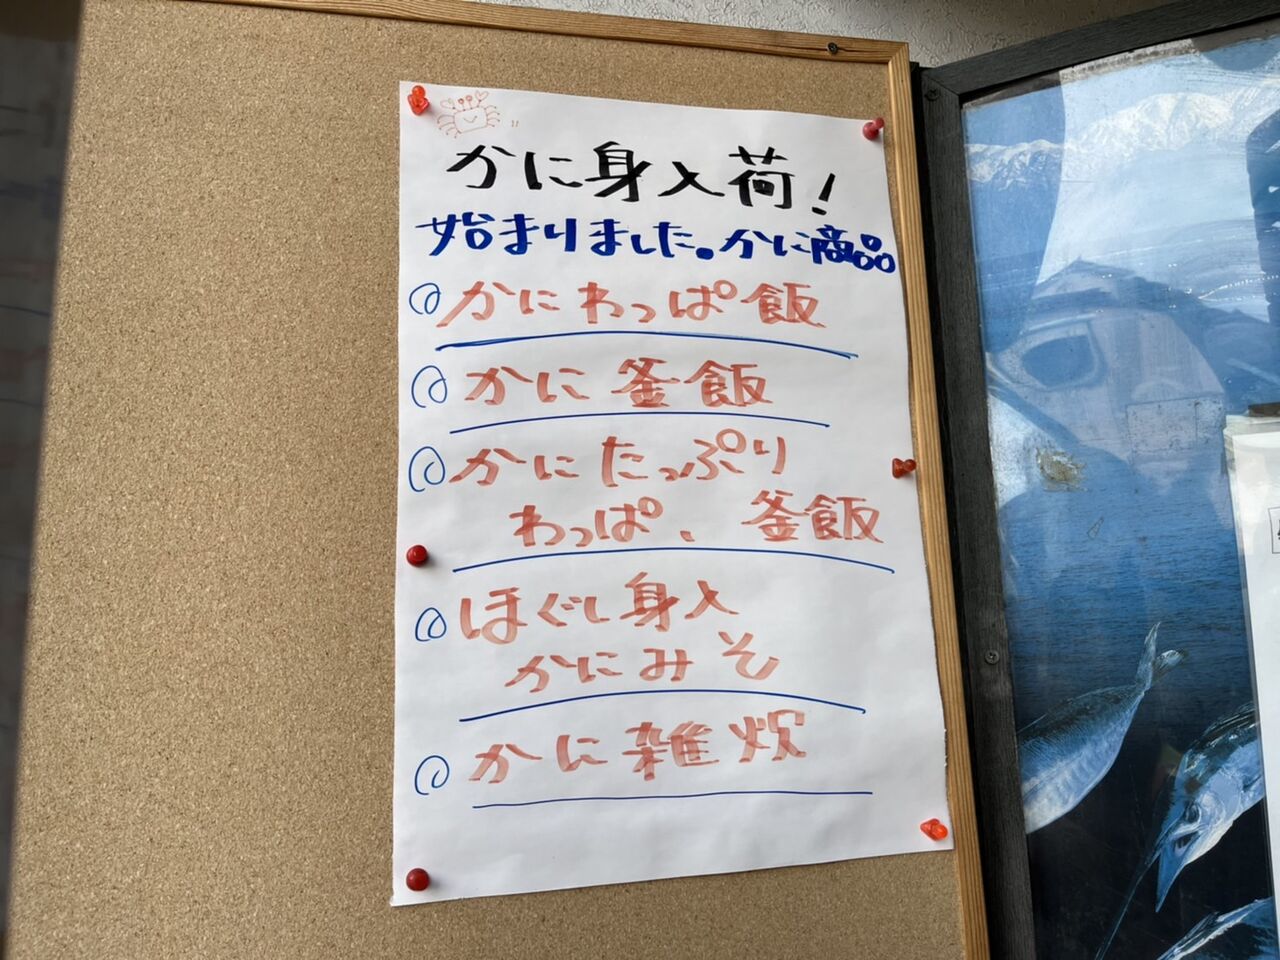 かに身入荷!
始まりました。かに商品
◎かにわっぱ飯
◎かに釜飯
◎かにたっぷり
わっぱ、釜飯
◎ほぐし身入
かにみそ
◎かに雑炊